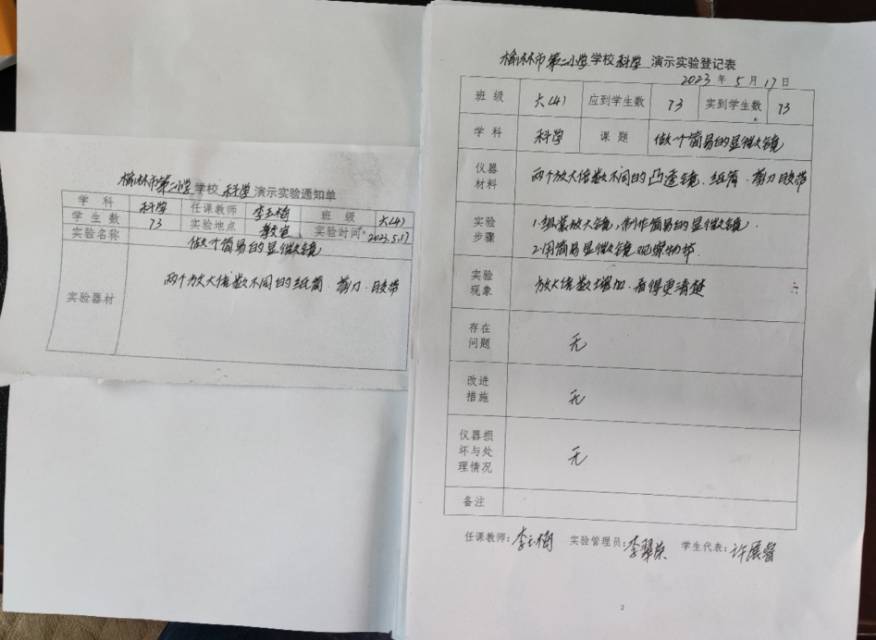 榆林市第二小学学校科学演示实验通知单
学科 科学 任课教师 班级 六(4)
学生数 73 实验地点 教室 实验时间 2023.5.17
实验名称 做个简易的显微镜
实验器材 两个放大倍数不同的纸筒 剪刀 胶带
榆林市第二小学学校科学演示实验登记表
2023年5月17日
班级 六(4) 应到学生数 73 实到学生数 73
学科 科学 课题 做个简易的显微镜
仪器材料 两个放大倍数不同的凸透镜、纸筒、剪刀 胶带
实验步骤 1.组装放大镜,制作简易的显微镜.
2.用简易显微镜观察物体.
实验现象 放大倍数增加.看得更清楚
存在问题 无
改进措施 无
仪器损坏与处理情况 无
备注
任课教师: 实验管理员: 学生代表:
2